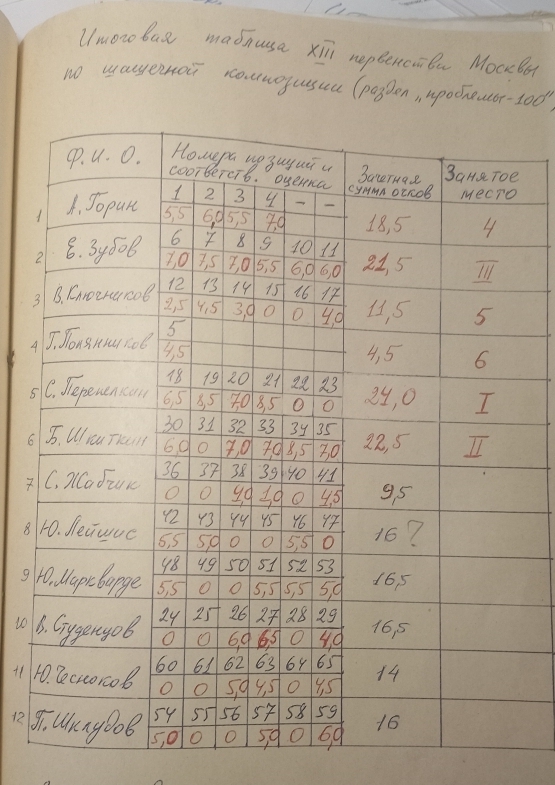 Итоговая таблица XIII первенства Москвы
по шашечной композиции (раздел "проблемы-100"
Ф. И. О. Номера позиций и соответств. оценка Зачетная сумма очков Занятое место
1 А. Горин 1 2 3 4 - - 18,5 4
5,5 6,0 5,5 7,0
2 Е. Зубов 6 7 8 9 10 11 21,5 III
7,0 7,5 7,0 5,5 6,0 6,0
3 В. Ключников 12 13 14 15 16 17 11,5 5
2,5 4,5 3,0 0 0 4,0
4 Г. Полянников 5 4,5 6
4,5
5 С. Перепелкин 18 19 20 21 22 23 24,0 I
6,5 8,5 7,0 8,5 0 0
6 Б. Шкиткин 30 31 32 33 34 35 22,5 II
6,0 0 7,0 7,0 8,5 7,0
7 С. Жабчик 36 37 38 39 40 41 9,5
0 0 4,0 1,0 0 4,5
8 Ю. Лейшис 42 43 44 45 46 47 16 ?
5,5 5,0 0 0 5,5 0
9 Ю. Маркварде 48 49 50 51 52 53 16,5
5,5 0 0 5,5 5,5 5,0
10 В. Студенцов 24 25 26 27 28 29 16,5
0 0 6,0 6,5 0 4,0
11 Ю. Чесноков 60 61 62 63 64 65 14
0 0 5,0 4,5 0 4,5
12 П. Шклудов 54 55 56 57 58 59 16
5,0 0 0 5,0 0 6,0